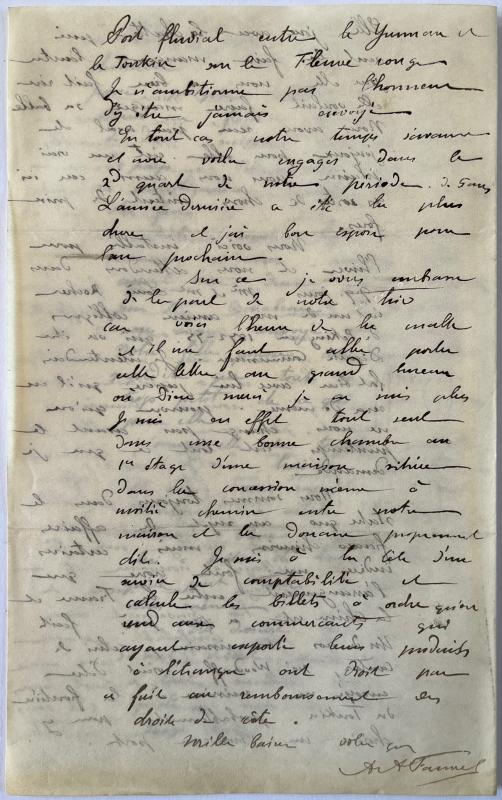 Port fluvial entre le Yunnan et
le Tonkin sur le Fleuve rouge
Je n'ambitionne pas l'honneur
d'y être jamais envoyé
En tout cas notre temps s'avance
et nous voilà engagés dans le
2d quart de notre période de 5 ans
L'année dernière a été la plus
dure et j'ai bon espoir pour
l'an prochain.
Sur ce je vous embrasse
de la part de notre trio
car voici l'heure de la malle
et il me faut aller porter
cette lettre au grand bureau
où Dieu merci je ne suis plus
Je suis en effet tout seul
dans une bonne chambre au
1er étage d'une maison située
dans la concession même à
moitié chemin entre notre
maison et la douane proprement
dite. Je suis à la tête d'un
service de comptabilité et
calcule les billets à ordre qu'on
rend aux commerçants qui
ayant exporté leurs produits
à l'étranger ont droit par
ce fait au remboursement des
droits de côte.
Mille baisers
A. A